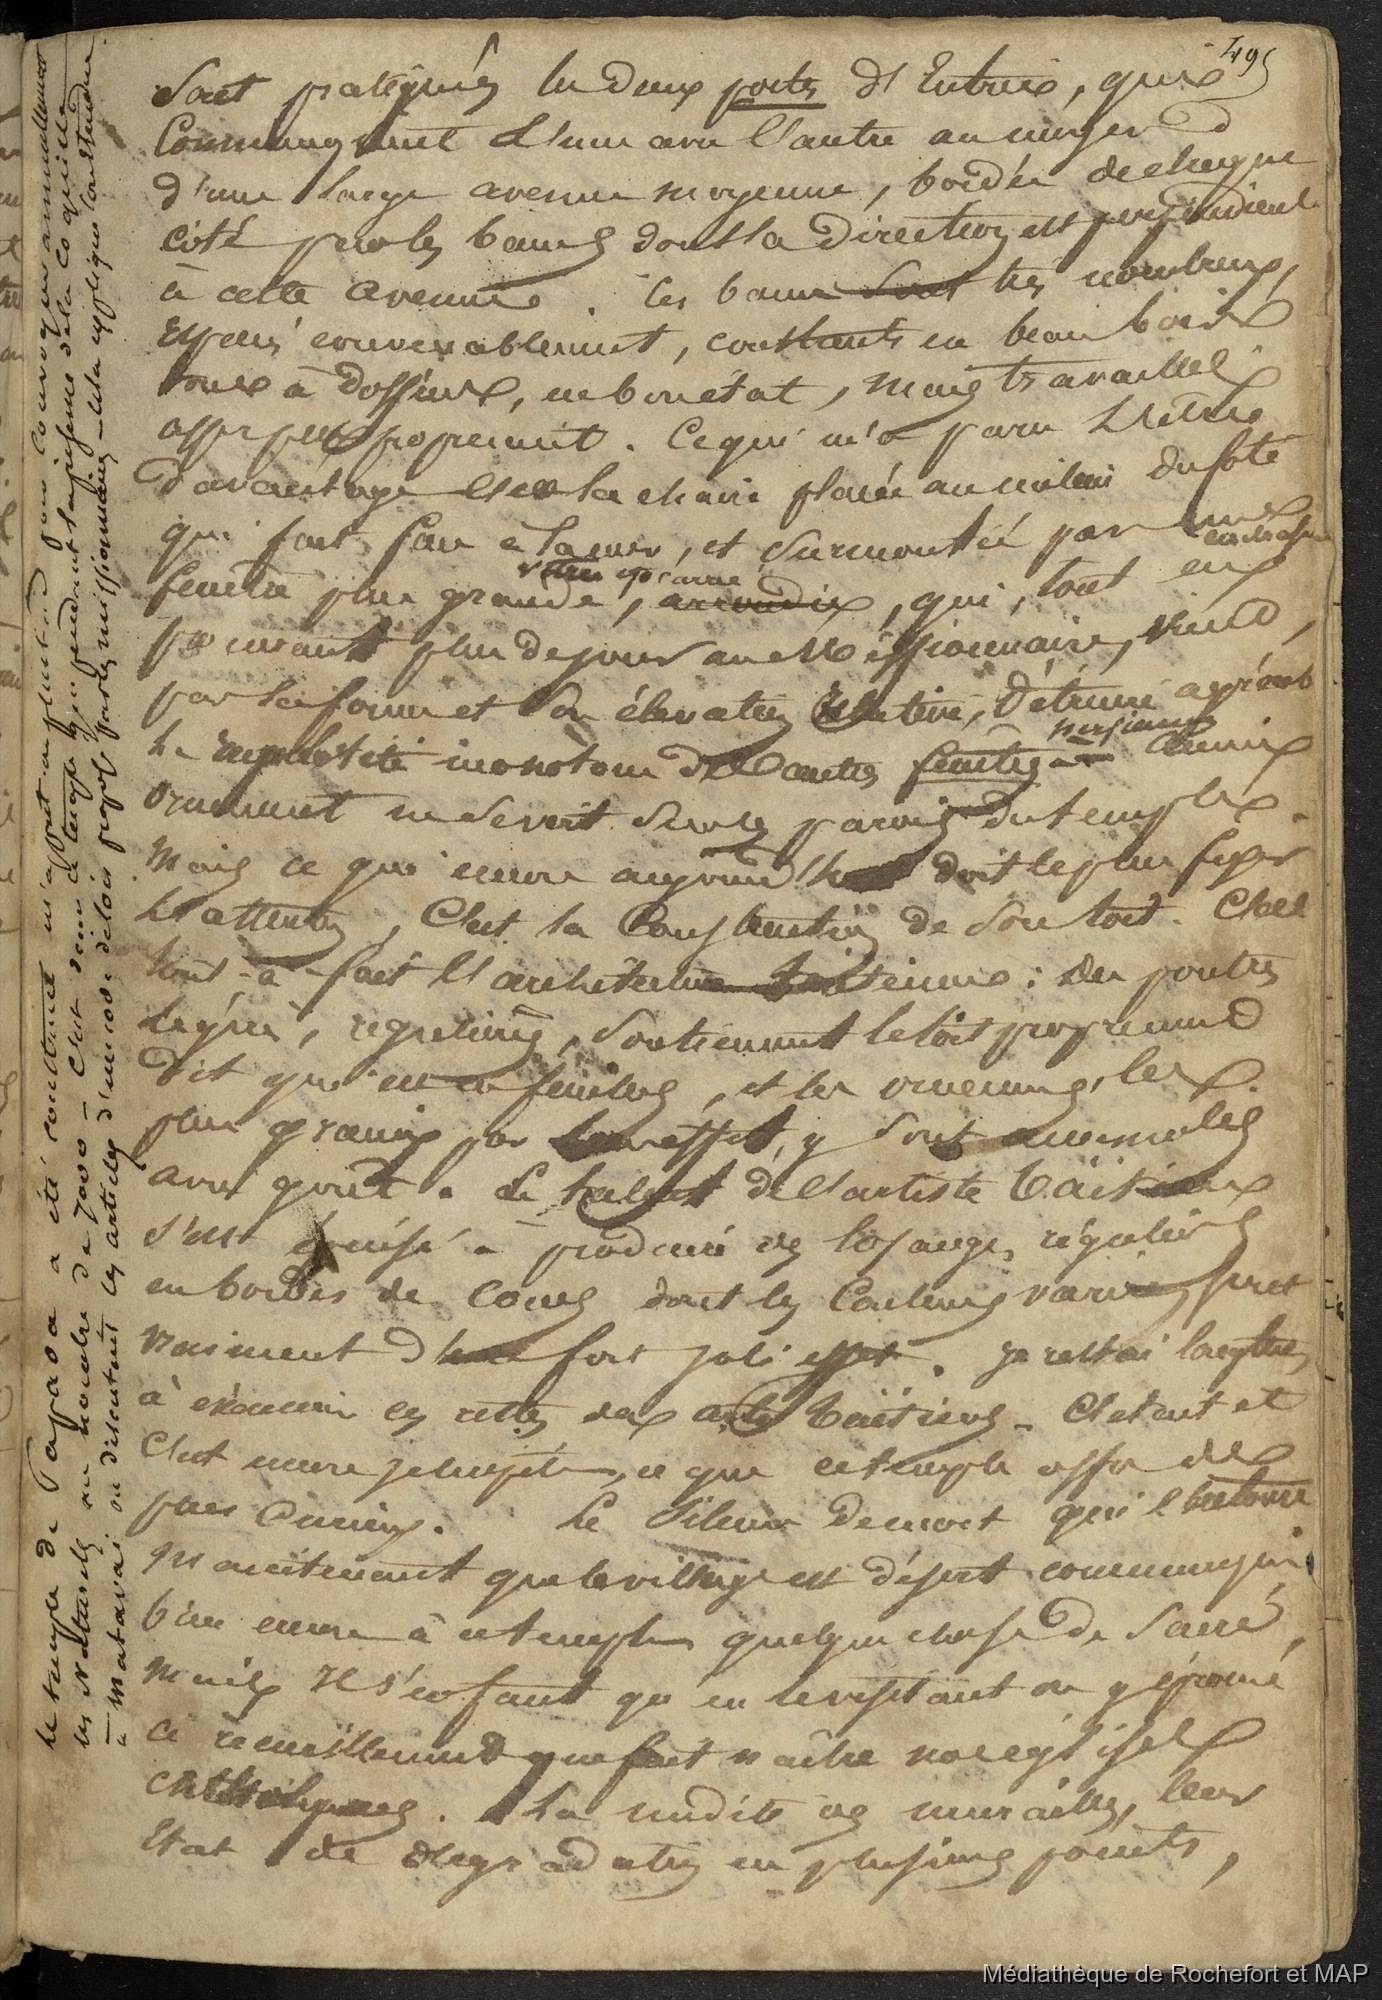 495
sont pratiquées les deux portes d'Entrée, qui
Communiquent L'une avec l'autre au moyen
d'une large avenue moyenne, bordée de chaque
côté par les bancs dont la direction est perpendiculaire
à cette avenue. Ces bancs sont très nombreux,
Espacés convenablement, construits en beau bois
tous à dossiers, en bon état, mais travaillés
assez peu proprement. Ce qui m'a paru L'être
davantage est la chaire placée au milieu du côté
qui fait face à la mer, et surmontée par une
fenêtre plus grande, arrondie, qui, tout en
plus de jour au Missionnaire, vient,
par sa forme et son élévation relative, détruire
la monotone des autres fenêtres persiennes Aucun
ornement ne se voit sur les parois du temple.
Mais ce qui encore aujourd'hui doit le plus fixer
L'attention, C'est la Construction de son toit. C'est
tout-à-fait l'architecture taïtienne : des poutres
légères, régulières, soutiennent le toit proprement
dit qui est en feuilles, et les ornemens, les
plus gracieux par leur effet, y sont accumulés
avec goût. Le talent de l'artiste taïtien
s'est épuisé à produire des losanges réguliers
en bordes de Cocos dont les Couleurs variées font
vraiment d'un fort joli effet. Je restai longtems
à examiner ces restes des arts taïtiens. C'était et
C'est encore je le répète, ce que ce temple offre de
plus Curieux. Le silence de mort qui l'entoure
maintenant que le village est désert communique
bien encore à ce temple quelque chose de sacré,
mais Il s'en faut qu'en le visitant on y éprouve
ce recueillement que fait naître nos églises
Catholiques. La nudité des murailles, leur
Etat de dégradation en plusieurs points,
Le temple de Papaoa a été construit m'apprit-on plus tard pour convoquer annuellement
les Naturels au nombre de 7000 — C'est dans ce temple que
à Matavaï on discutait les articles d'un code de lois proposé par les missionnaires